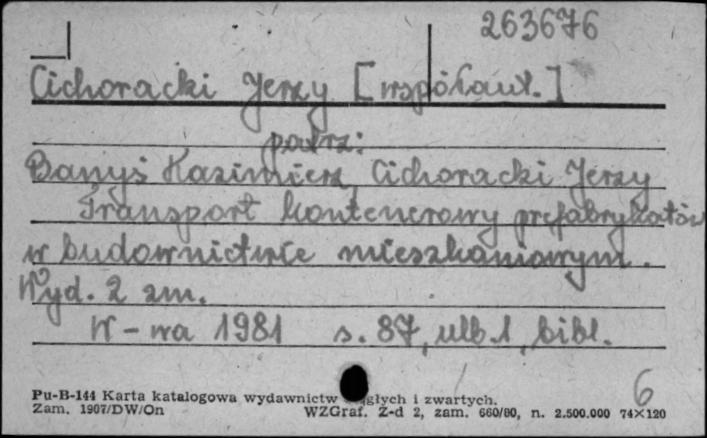 263676
Cichoracki Jerzy [współaut.]
patrz:
Banyś Kazimierz, Cichoracki Jerzy
Transport kontenerowy prefabrykatów
w budownictwie mieszkaniowym.
Wyd. 2 zm.
W-wa 1981 s. 87, nlb. 1, bibl.
6
Pu-B-144 Karta katalogowa wydawnictw głych i zwartych.
Zam. 1907/DW/On WZGraf. Z-d 2, zam. 660/80, n. 2.500.000 74×120